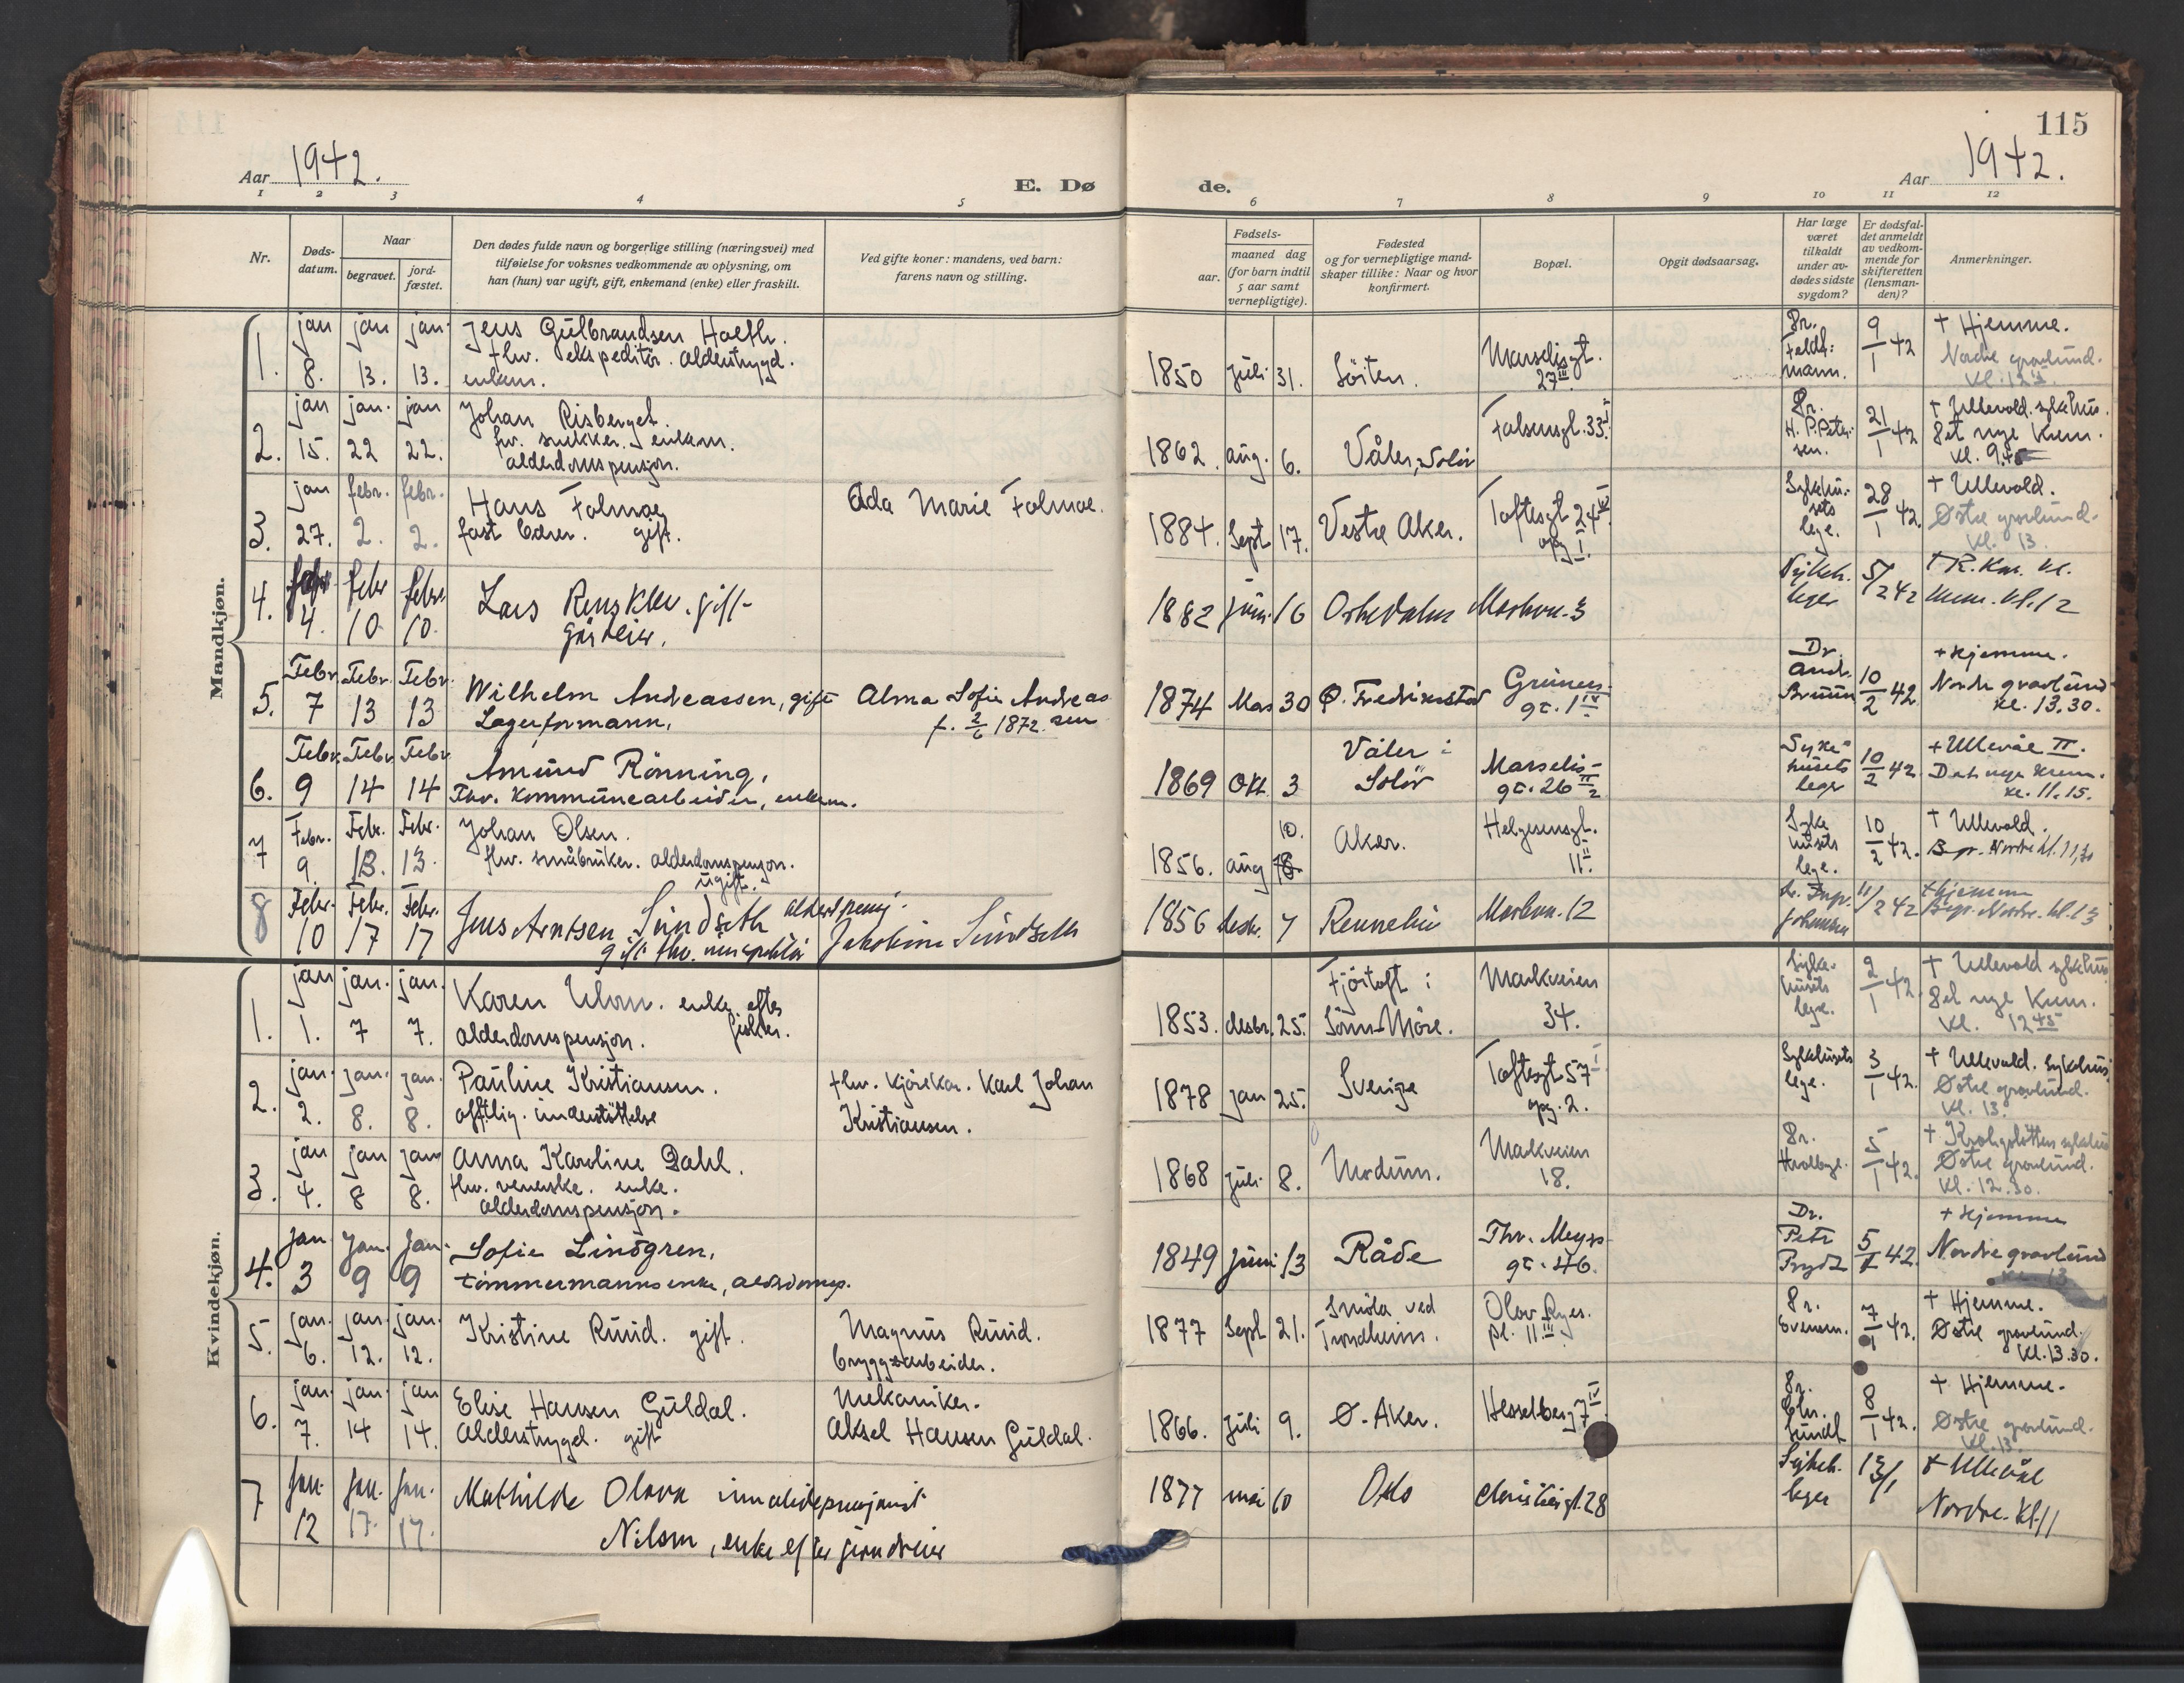 115
Aar 1942.
E. Døde.
Aar 1942.
1 2 3 4 5 6 7 8 9 10 11 12
Nr.
Døds-
datum.
Naar
begravet.
jord-
fæstet.
Den dødes fulde navn og borgerlige stilling (næringsvei) med
tilføielse for voksnes vedkommende av oplysning, om
han (hun) var ugift, gift, enkemand (enke) eller fraskilt.
Ved gifte koner: mandens, ved barn:
farens navn og stilling.
aar.
Fødsels-
maaned dag
(for barn indtil
5 aar samt
vernepligtige).
Fødested
og for vernepligtige mand-
skaper tillike: Naar og hvor
konfirmert.
Bopæl.
Opgit dødsaarsag.
Har læge
været
tilkaldt
under av-
dødes sidste
sygdom?
Er dødsfal-
det anmeldt
av vedkom-
mende for
skifteretten
(lensman-
den)?
Anmerkninger.
Mandkjøn.
1. jan 8. jan 13. jan. 13.
Jens Gulbrandsen
fhv. ekspeditør. alderstrygd.
enkem.
1850 juli 31. Löiten. Marselisgt. 27 III
9/1 42
+ Hjemme.
Nordre gravlund.
2. jan 15. jan. 22 jan 22.
Johan Risberget.
fv. snekker. enkem.
alderdomspensjon.
1862. aug. 6. Våler, Solör Falsensgt. 33
Dr.
H. P. Peter-
sen.
21/1 42
+ Ullevold. sykehus.
Det nye Krem.
kl. 9.45
3. jan 27. febr. 2. febr. 2.
Hans Folmoe
gift.
Ada Marie Folmoe.
1884. Sept 17. Vestre Aker. Toftesgt 24
opg I.
Sykehu-
sets
lege.
28/1 42.
+ Ullevold.
Østre gravlund.
kl. 13.
4. febr 4. febr 10 febr 10.
Lars gift
gårdeier.
1882 juni 16 Orkedalen Markvn. 3
Sykeh.
leger
5/2 42
Krem. kl. 12
5. Febr. 7 Febr. 13 Febr. 13
Wilhelm Andreassen, gift
Lagerformann.
Alma Sofie Andreas
f. 2/6 1872. sen
1874 Mars 30 Ø. Fredrikstad Grüners-
gt. 1 IV
Dr.
Andr.
Bruun
10/2 42
+ Hjemme.
Nordre gravlund
kl. 13.30.
6. Febr. 9 Febr. 14 Febr 14
Amund Rönning,
Fhv. Kommunearbeider, enkem.
1869 Okt. 3 Våler i
Solör
Marselis-
gt. 26
Syke-
husets
leger
10/2 42
+ Ullevål II.
Det nye Krem.
kl. 11.15.
7 Febr. 9. Febr. 13. Febr. 13.
Johan Olsen.
fhv. småbruker. alderdomspensjon.
ugift.
1856. aug 10. Aker. Helgesensgt.
11 II.
Syke
husets
lege.
10/2 42.
+ Ullevold.
Bep. Nordre kl. 11,30
8 Febr. 10 Febr. 17 Febr. 17
Jens Arntsen Sundseth
gift fhv. inspektör
Jakobine Sundseth
1856 desbr. 7 Rennebu Markvn. 12
11/2 42
+ hjemme
Bep. Nordre. kl. 13
Kvindekjøn.
1. jan 1. jan. 7 jan. 7.
Karen enke efter
alderdomspensjon. fisker.
1853. desbr. 25. Fjörtoft i
Sönn-Möre.
Markveien
34.
Syke-
husets
lege.
2/1 42.
+ Ullevold sykehus
Det nye Krem.
Kl. 12 45
2. jan. 2. jan. 8. jan. 8.
Pauline Kristiansen.
offtlig. understöttelse
fhv. kjörekar. Karl Johan
Kristiansen.
1878 jan 25. Sverige Toftesgt 57
opg. 2.
Sykehusets
lege.
3/1 42.
+ Ullevold. Sykehus.
Østre gravlund.
Kl. 13.
3. jan 4. jan 8 jan 8.
Anna Karoline Dahl.
fhv. veverske. enke.
alderdomspensjon.
1868 juli 8. Modum. Markveien
18.
Dr.
5/1 42.
+ Krohgstötten sykehus
Østre gravlund.
kl. 12.30.
4. jan. 3 jan. 9 jan. 9
Sofie Lindgren,
tömmermannsenke, alderdomsp.
1849 juni 13 Råde Thv. Meyers
gt. 46.
Dr.
Petr
Prydz
5/1 42.
+ Hjemme
Nordre gravlund
kl. 13
5. jan. 6. jan. 12. jan. 12.
Kristine Ruud. gift.
Magnus Ruud.
bryggearbeider.
1877 Sept 21. Smöla ved
Trondheim.
Olav Ryes.
pl. 11 III
Dr.
Evensen.
7/1 42.
+ Hjemme.
Østre gravlund.
Kl. 13.30.
6. jan. 7. jan. 14 jan 14.
Elise Hansen Guldal.
Alderstrygd. gift
Mekaniker.
Aksel Hansen Guldal.
1866. juli 9. Ø. Aker. Hesselberg 7 IV
Dr.
Chr.
Lundt
8/1 42.
+ Hjemme.
Østre gravlund.
Kl. 13.
7 Jan. 12 Jan. 17. Jan. 17.
Mathilde Olava invalidepensjonist
Nilsen, enke efter jerndreier
1877 mai 10 Oslo Christiesgt. 28
Sykeh.
leger
13/1
+ Ullevål
Nordre. Kl. 11